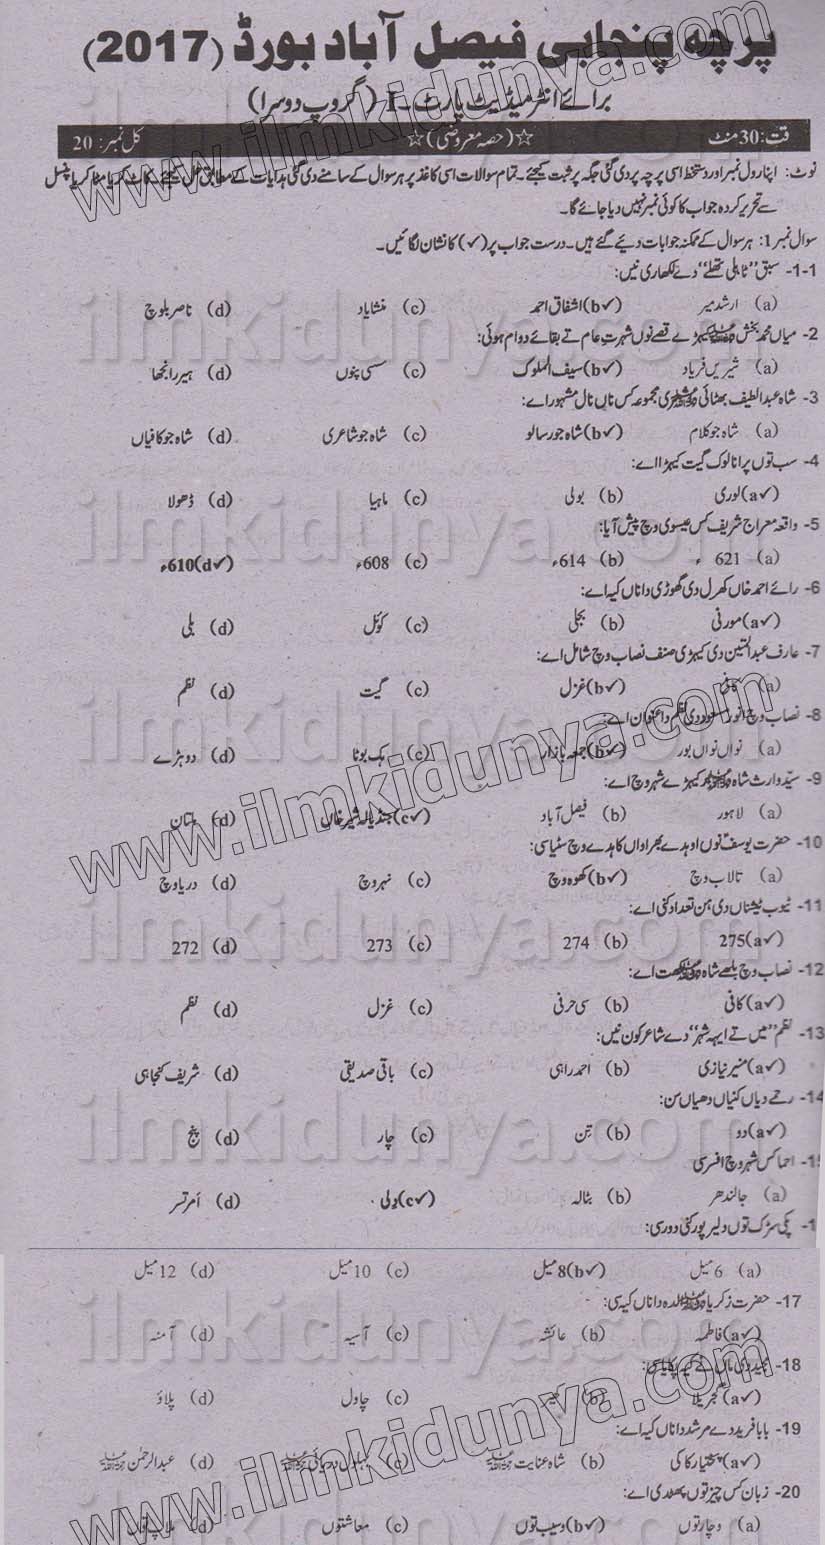 پرچہ پنجابی فیصل آباد بورڈ (2017)
برائے انٹرمیڈیٹ پارٹ-I (گروپ دوسرا)
وقت: 30 منٹ ☆(حصہ معروضی)☆ کل نمبر: 20
نوٹ: اپنا رول نمبر اور دستخط اسی پرچہ پر دی گئی جگہ پر ثبت کیجئے۔ تمام سوالات اسی کاغذ پر ہر سوال کے سامنے دی گئی ہدایات کے مطابق حل کیجئے۔ کاٹ کر یا مٹا کر یا پنسل
سے تحریر کردہ جواب کا کوئی نمبر نہیں دیا جائے گا۔
سوال نمبر 1: ہر سوال کے ممکنہ جوابات دیئے گئے ہیں۔ درست جواب پر (✓) کا نشان لگائیں۔
1-1- سبق "ٹاہلی تھلے" دے لکھاری نیں:
(a) ارشد میر (b✓) اشفاق احمد (c) منشا یاد (d) ناصر بلوچ
2- میاں محمد بخش دے کیہڑے قصے نوں شہرتِ عام تے بقائے دوام ہوئی:
(a) شیریں فرہاد (b✓) سیف الملوک (c) سسی پنوں (d) ہیر رانجھا
3- شاہ عبداللطیف بھٹائی دا شعری مجموعہ کس ناں نال مشہور اے:
(a) شاہ جو کلام (b✓) شاہ جو رسالو (c) شاہ جو شاعری (d) شاہ جو کافیاں
4- سب توں پرانا لوک گیت کیہڑا اے:
(a✓) لوری (b) بولی (c) ماہیا (d) ڈھولا
5- واقعہ معراج شریف کس عیسوی وچ پیش آیا:
(a) 621ء (b) 614ء (c) 608ء (d✓) 610ء
6- رائے احمد خاں کھرل دی گھوڑی دا ناں کیہ اے:
(a✓) مورنی (b) بجلی (c) کوئل (d) بلی
7- عارف عبدالمتین دی کیہڑی صنف نصاب وچ شامل اے:
(a) کافی (b✓) غزل (c) گیت (d) نظم
8- نصاب وچ انور مسعود دی نظم دا عنوان اے:
(a) نواں نواں پور (b✓) جمعہ بازار (c) ہک بوٹا (d) دوہڑے
9- سیّد وارث شاہ دا مزار کیہڑے شہر وچ اے:
(a) لاہور (b) فیصل آباد (c✓) جنڈیالہ شیر خاں (d) ملتان
10- حضرت یوسفؑ نوں اوہدے بھراواں کاہدے وچ سٹیا سی:
(a) تالاب وچ (b✓) کھوہ وچ (c) نہر وچ (d) دریا وچ
11- ٹیوب ٹیشناں دی ہن تعداد کنی اے:
(a✓) 275 (b) 274 (c) 273 (d) 272
12- نصاب وچ بلھے شاہ دی لکھت اے:
(a✓) کافی (b) سی حرفی (c) غزل (d) نظم
13- نظم "میں تے ایہہ شہر" دے شاعر کون نیں:
(a✓) منیر نیازی (b) احمد راہی (c) باقی صدیقی (d) شریف کنجاہی
14- رحمے دیاں کنیاں دھیاں سن:
(a✓) دو (b) تِن (c) چار (d) پنج
15- احما کس شہر وچ افسر سی
(a) جالندھر (b) بٹالہ (c✓) دِلی (d) اَمرتسر
1- پکی سڑک توں دلیر پور کنی دور سی:
(a) 6 میل (b✓) 8 میل (c) 10 میل (d) 12 میل
17- حضرت زکریا دی والدہ دا ناں کیہ سی:
(a✓) فاطمہ (b) عائشہ (c) آسیہ (d) آمنہ
18- دی ماں نے کیہ پکایا سی:
(a✓) گجریلا (b) کھیر (c) چاول (d) پلاؤ
19- بابا فرید دے مرشد دا ناں کیہ اے:
(a✓) بختیار کاکی (b) شاہ عنایت (c) بہلول دریائی (d) عبدالرحمٰن
20- زبان کس چیز توں پھٹدی اے:
(a) وچار توں (b✓) وسیب توں (c) معاشتوں (d) ملاپ توں
www.ilmkidunya.com